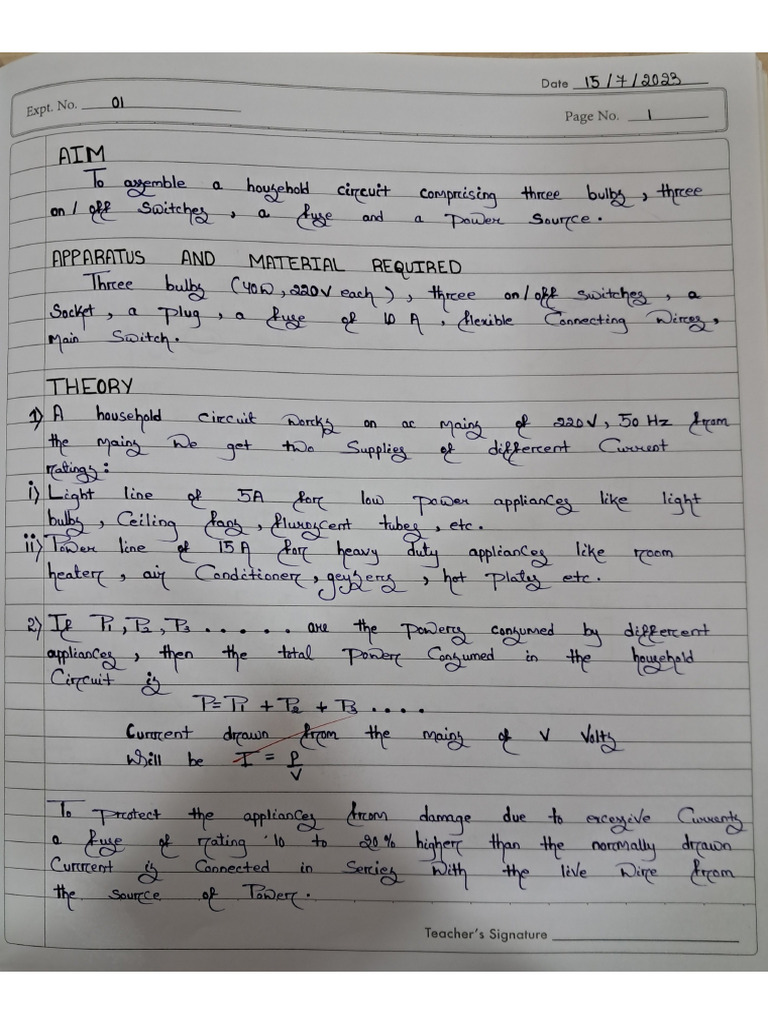 Date 15/7/2023
Expt. No. 01
Page No. 1
AIM
To assemble a household circuit comprising three bulbs, three
on/off switches, a fuse and a power source.
APPARATUS AND MATERIAL REQUIRED
Three bulbs (40W, 220V each), three on/off switches, a
socket, a plug, a fuse of 10 A, flexible Connecting Wires,
main Switch.
THEORY
1) A household circuit works on ac mains of 220V, 50 Hz from
the mains we get two Supplies of different Current
ratings:
i) Light line of 5A for low power appliances like light
bulbs, Ceiling fans, fluroscent tubes, etc.
ii) Power line of 15A for heavy duty appliances like room
heater, air Conditioner, geysers, hot plates etc.
2) If P1, P2, P3 ..... are the powers consumed by different
appliances, then the total power Consumed in the household
Circuit is
P=P1 + P2 + P3 ....
Current drawn from the mains of V Volts
Will be I = P/V
To protect the appliances from damage due to excessive Currents
a fuse of rating 10 to 20% higher than the normally drawn
Current is Connected in Series With the live Wire from
the source of Power.
Teacher's Signature